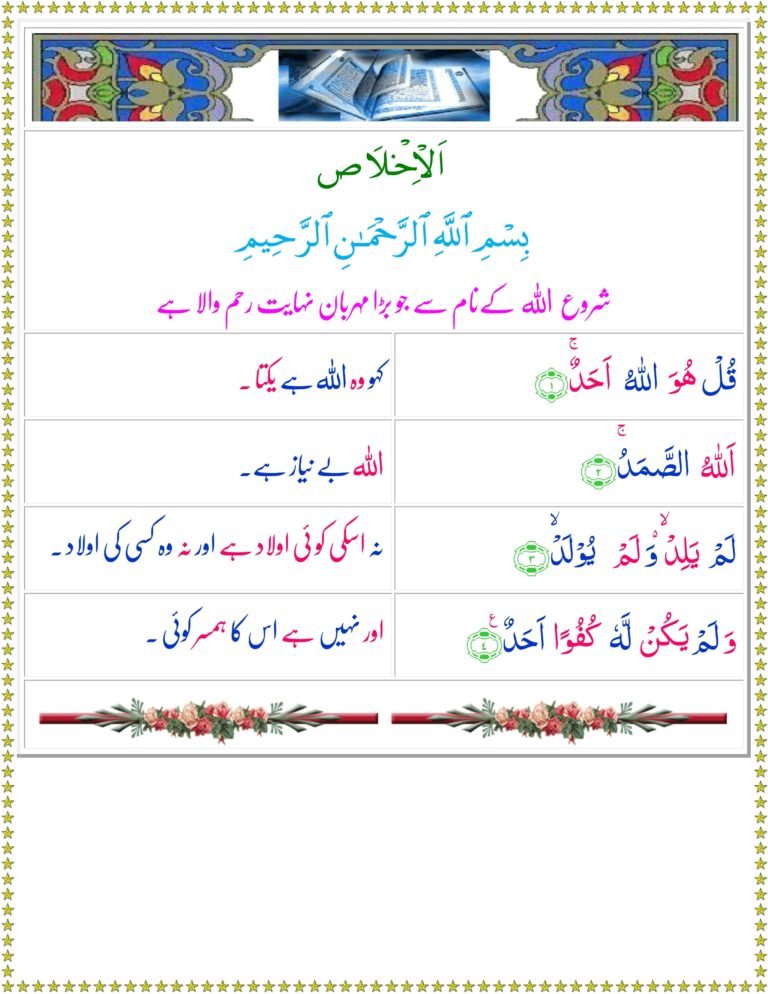 اَلْاِخْلَاص
بِسْمِ ٱللَّهِ ٱلرَّحْمَـٰنِ ٱلرَّحِيمِ
شروع اللہ کے نام سے جو بڑا مہربان نہایت رحم والا ہے
قُلْ هُوَ اللّٰهُ اَحَدٌ ۚ ﴿۱﴾
کہو وہ اللہ ہے یکتا ۔
اَللّٰهُ الصَّمَدُ ۚ ﴿۲﴾
اللہ بے نیاز ہے۔
لَمْ يَلِدْ ۙ وَلَمْ يُوْلَدْ ۙ ﴿۳﴾
نہ اسکی کوئی اولاد ہے اور نہ وہ کسی کی اولاد ۔
وَلَمْ يَكُنْ لَّهٗ كُفُوًا اَحَدٌ ع ﴿٤﴾
اور نہیں ہے اس کا ہمسر کوئی ۔